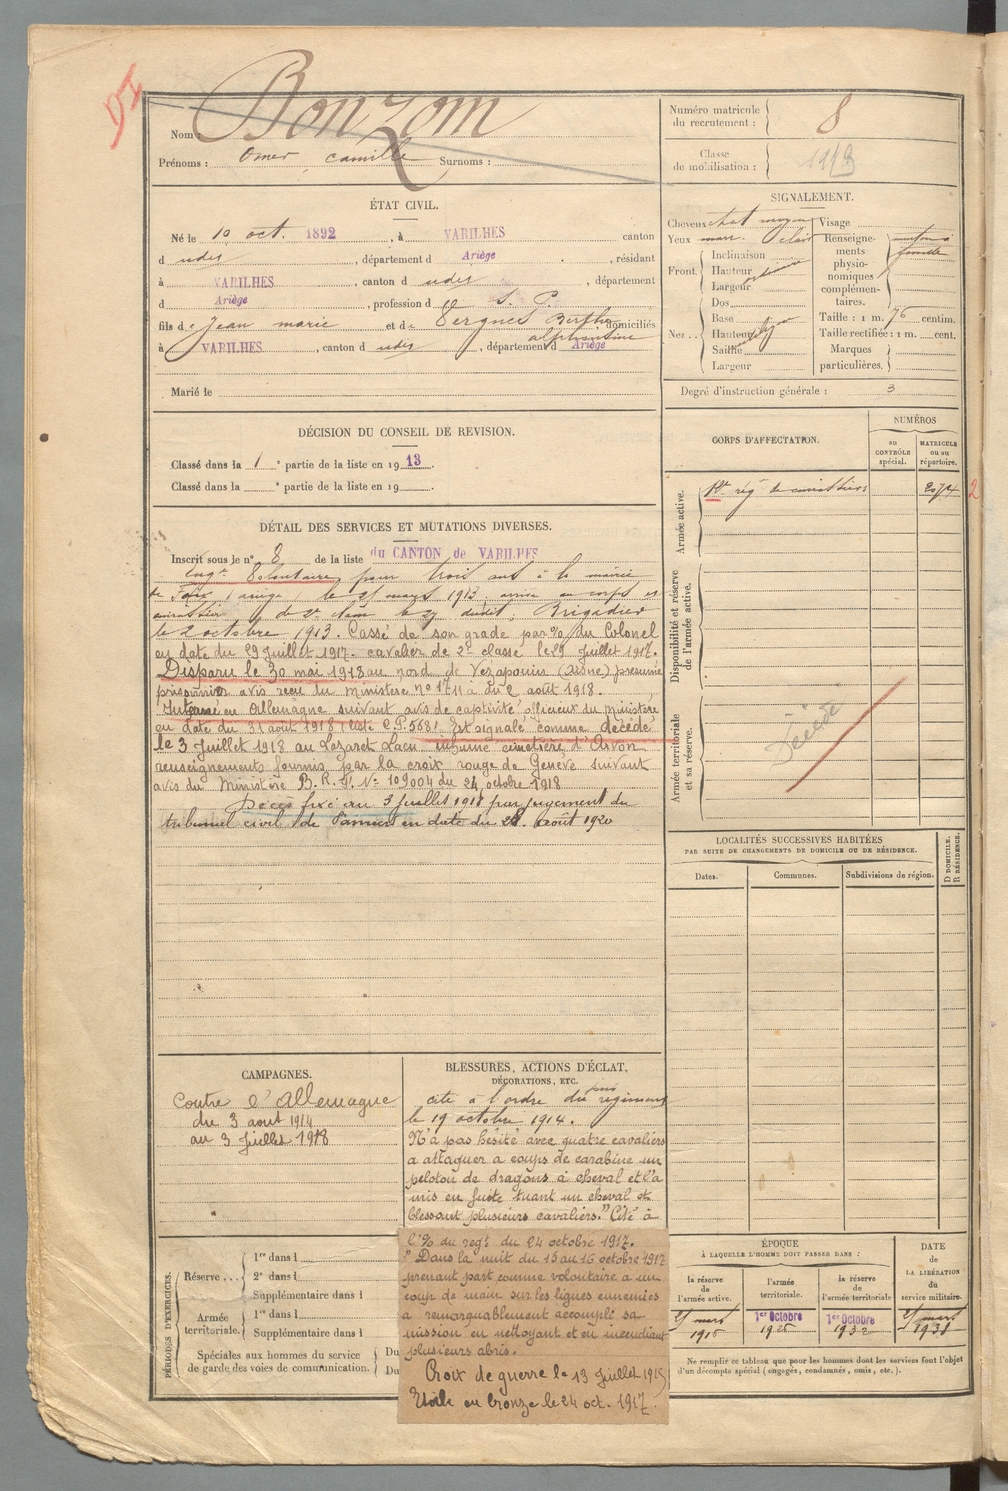 DI
Nom : Bonzom
Prénoms : Omer Camille Surnoms :
Numéro matricule du recrutement : 8
Classe de mobilisation : 1913
ÉTAT CIVIL.
Né le 10 oct. 1892, à VARILHES canton
d udes, département d Ariège, résidant
à VARILHES, canton d udes, département
d Ariège, profession d S. P.
fils de Jean marie et de Vergnes Berthe alphonsine domiciliés
à VARILHES, canton d udes, département d Ariège
Marié le
SIGNALEMENT.
Cheveux chat moyen
Yeux marr. clair
Front.
Inclinaison
Hauteur
Largeur
Nez
Dos
Base
Hauteur
Saillie
Largeur
Visage
Renseignements physionomiques complémentaires.
Taille : 1 m. 76 centim.
Taille rectifiée : 1 m. cent.
Marques particulières.
Degré d'instruction générale : 3
DÉCISION DU CONSEIL DE REVISION.
Classé dans la 1 e partie de la liste en 1913.
Classé dans la e partie de la liste en 19
DÉTAIL DES SERVICES ET MUTATIONS DIVERSES.
Inscrit sous le n° 8 de la liste du CANTON de VARILHES
Engé Volontaire pour trois ans à la mairie
de Foix (ariège) le 27 mars 1913 arrivé au corps et
de 2e le 27 dudit, Brigadier
le 2 octobre 1913. Cassé de son grade par % du Colonel
en date du 29 Juillet 1917. cavalier de 2e classe le 29 Juillet 1917.
Disparu le 30 mai 1918 au nord de Vézapouin (Aisne) présumé
prisonnier avis reçu du Ministère du 2 août 1918.
Interné en Allemagne suivant avis de captivité officieux du ministère
en date du 31 août 1918 (liste C.P. 568). Est signalé comme décédé
le 3 Juillet 1918 au Lazaret Laon inhumé cimetière d'Arvon
renseignements fournis par la croix rouge de Genève suivant
avis du Ministère B.R.F. N° 109004 du 24 octobre 1918
Décès fixé au 3 Juillet 1918 par jugement du
tribunal civil de Pamiers en date du août 1920
CORPS D'AFFECTATION.
NUMÉROS
au CONTRÔLE spécial.
MATRICULE ou au répertoire.
Armée active.
rég de cuirassiers 2074
2
Disponibilité et réserve de l'armée active.
Armée territoriale et sa réserve.
Décédé
LOCALITÉS SUCCESSIVES HABITÉES
PAR SUITE DE CHANGEMENTS DE DOMICILE OU DE RÉSIDENCE.
Dates.
Communes.
Subdivisions de région.
D DOMICILE.
R RÉSIDENCE.
CAMPAGNES.
Contre l'Allemagne
du 3 août 1914
au 3 Juillet 1918
BLESSURES, ACTIONS D'ÉCLAT,
DÉCORATIONS, ETC.
cité à l'ordre du régiment
le 19 octobre 1914.
N'a pas hésité avec quatre cavaliers
a attaquer a coups de carabine un
peloton de dragons à cheval et l'a
mis en fuite tuant un cheval et
blessant plusieurs cavaliers." Cité à
l'% du regt du 24 octobre 1917.
" Dans la nuit du 15 au 16 octobre 1917
prenant part comme volontaire a un
coup de main sur les lignes ennemies
a remarquablement accompli sa
mission en nettoyant et en incendiant
plusieurs abris.
Croix de guerre le 13 Juillet 1915
Etoile en bronze le 24 oct. 1917.
PÉRIODES D'EXERCICES.
Réserve
1re dans l
2e dans l
Supplémentaire dans l
Armée territoriale.
1re dans l
Supplémentaire dans l
Spéciales aux hommes du service de garde des voies de communication.
Du
Du
ÉPOQUE
À LAQUELLE L'HOMME DOIT PASSER DANS :
la réserve de l'armée active.
l'armée territoriale.
la réserve de l'armée territoriale
DATE de LA LIBÉRATION du service militaire.
27 mars 1915
1er Octobre 1925
1er Octobre 1932
27 mars 1938
Ne remplir ce tableau que pour les hommes dont les services font l'objet
d'un décompte spécial (engagés, condamnés, omis, etc.).